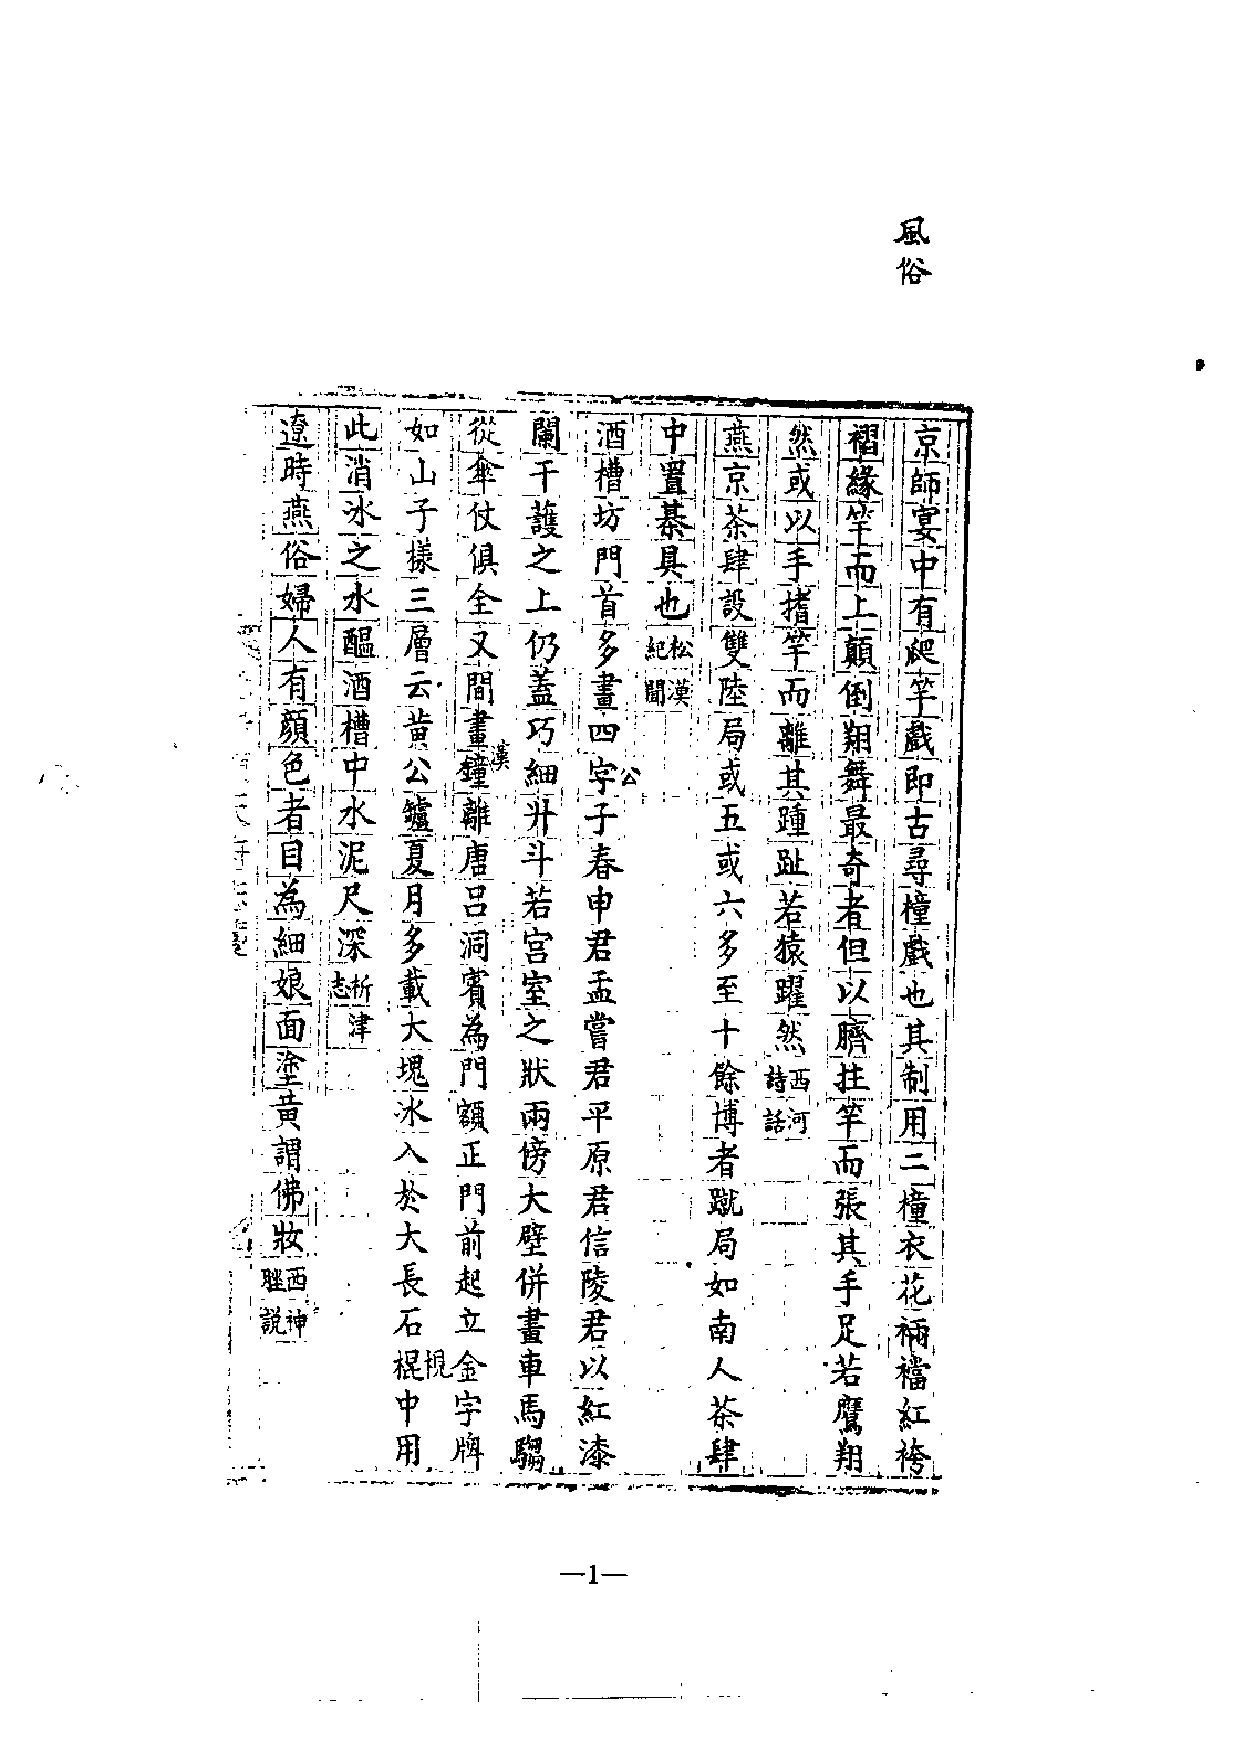 風俗
京師宴中有爬竿戲即古尋橦戲也其制用二橦衣花裲襠紅袴
褶緣竿而上顛倒翔舞最奇者但以臍拄竿而張其手足若鷹翔
然或以手搘竿而離其踵趾若猿躍然西河詩話
燕京茶肆設雙陸局或五或六多至十餘博者蹴局如南人茶肆
中置棊具也松漠紀聞
酒槽坊門首多畫四公字子春申君孟嘗君平原君信陵君以紅漆
闌干護之上仍蓋巧細升斗若宮室之狀兩傍大壁併畫車馬騶
從傘仗俱全又間畫漢鐘離唐呂洞賓為門額正門前起立金字牌
如山子樣三層云黃公鑪夏月多載大塊冰入於大長石棍梘中用
此消冰之水醞酒槽中水泥尺深析津志
遼時燕俗婦人有顏色者目為細娘面塗黃謂佛妝西神脞說
—1—